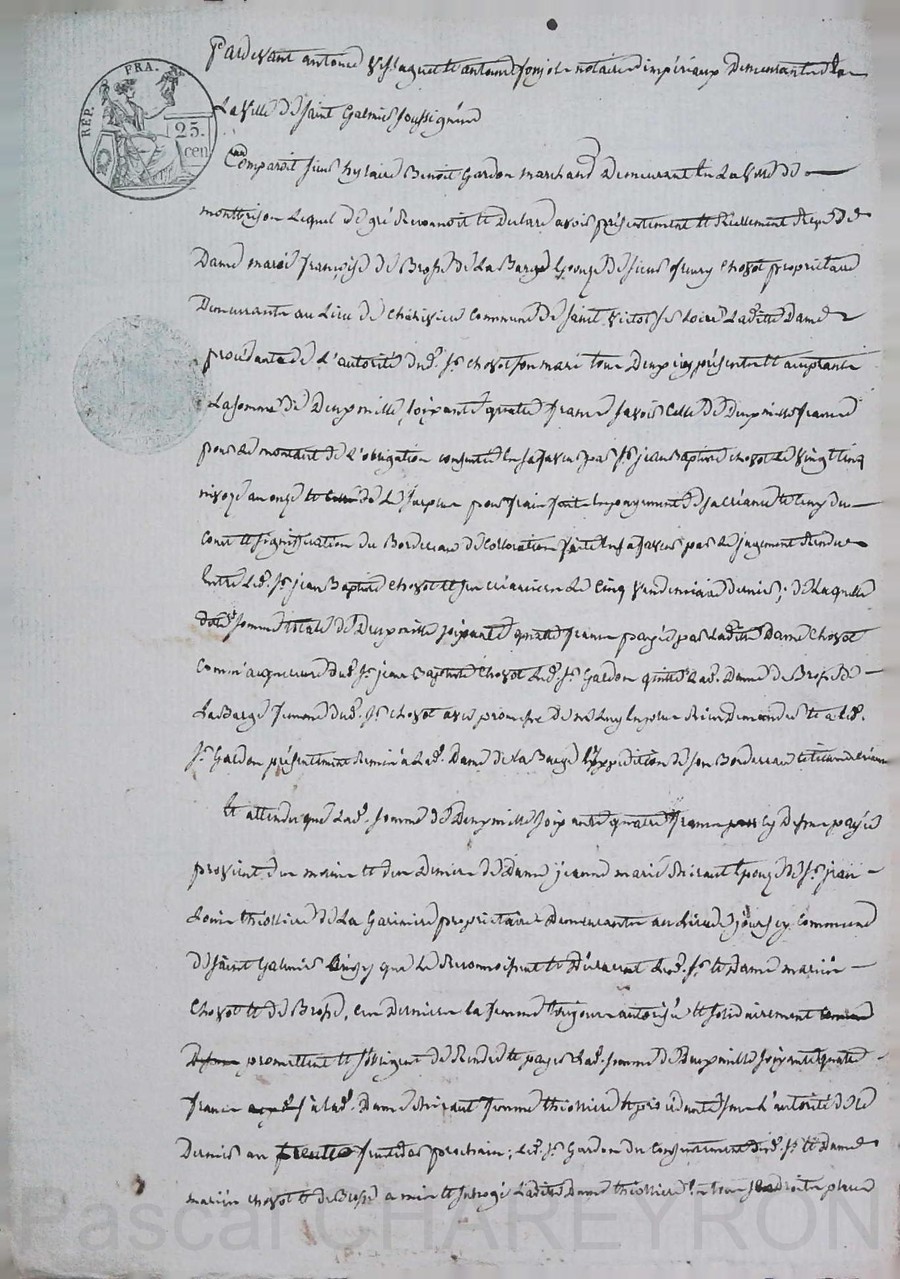 RÉP. FRA.
25.
cen
Pardevant antoine et antoine notaires impériaux Demeurants
La Ville de Saint Galmier soussignés
Comparoit sieur hylaire Benoit Gardon marchand Demeurant en La Ville de
montbrison Lequel de gré Reconnoit et Declare avoir présentement et Réellement Reçu de
Dame marie françoise de Brosse de La Barge Epouse de sieur fleury Chovot propriétaire
Demeurante au Lieu de Commune de saint Victor sr Loire Laditte Dame
procédante de L'autorité dud. sr. Chovot son mari tous Deux icy présents et acceptants
La somme de Deux mille soixante quatre francs savoir Celle de Deux mille francs
pour le montant de L'obligation consentie en sa faveur par sr jean Baptiste chovot Le vingt cinq
nivose an onze et de Le surplus pour frais faits en payement de sa créance et coup du
Cout et signification du Bordereau de Collocation faite en sa faveur par Le jugement Rendu
Entre Led. sr. jean Baptiste Chovot et ses créanciers Le Cinq Vendemiaire dernier; de Laquelle
somme totale de Deux mille soixante quatre francs payée par Laditte Dame Chovot
Comme acquereure dud. sr. jean Baptiste Chovot Led. sr. Gardon quitte Lad. Dame de Brosse de
La Barge femme dud. sr. Chovot avec promesse de ne Luy en jamais Rien Demander et a Led.
sr. Gardon présentement Remis à Lad. Dame de La Barge L'Expédition de son Bordereau
et attendu que Lad. somme de Deux mille soixante quatre francs cy Dessus payée
provient des mains et des Deniers de Dame jeanne marie épouse de sr. jean
Louis thiollière de La Garinière propriétaire Demeurante au Lieu de Commune
de saint Galmier ainsy que Le Reconnoissent et Déclarent Led. sr. et Dame mariés
Chovot et de Brosse, Ces Derniers la femme toujours autorisée et solidairement
promettent et s'obligent de Rendre et payer Lad. somme de Deux mille soixante quatre
francs à lad. Dame femme thiollière icy de L'autorité de ce
Dernier au prochain; Led. sr. Gardon du Consentement desd. sr. et Dame
mariés chovot et de Brosse a mis et subrogé Laditte Dame thiollière En son droit place
Pascal CHAREYRON